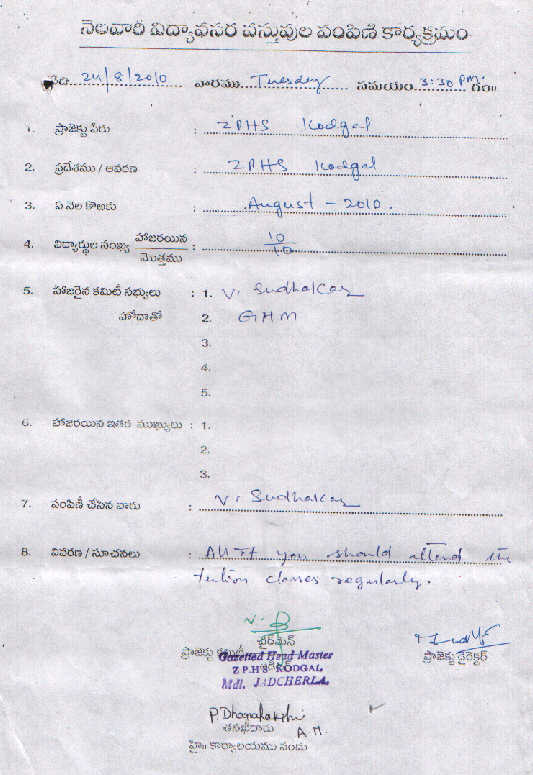 నెలవారీ విద్యావసర వస్తువుల పంపిణి కార్యక్రమం
తేది 24/8/2010 వారము Tuesday సమయం 3:30 PM గం॥
1. ప్రాజెక్టు పేరు : ZPHS Kodgal
2. ప్రదేశము / ఆవరణ : ZPHS Kodgal
3. ఏ నెల కొఱకు : August - 2010.
4. విద్యార్థుల సంఖ్య హాజరయిన : 10
మొత్తము 10
5. హాజరైన కమిటీ సభ్యులు : 1. V. Sudhakar
హోదాతో 2. GHM
3.
4.
5.
6. హాజరయిన ఇతర ముఖ్యులు : 1.
2.
3.
7. పంపిణీ చేసిన వారు : V. Sudhakar
8. వివరణ / సూచనలు : you should attend the
tution classes regularly.
చైర్మెన్
ప్రాజెక్టు కమిటీ ప్రాజెక్టు డైరెక్టర్
Gazetted Head Master
Z.P.H.S. KODGAL
Mdl. JADCHERLA.
P Dhanalakshmi
తనిఖీదారు A M.
హై॥ కార్యాలయము నందు